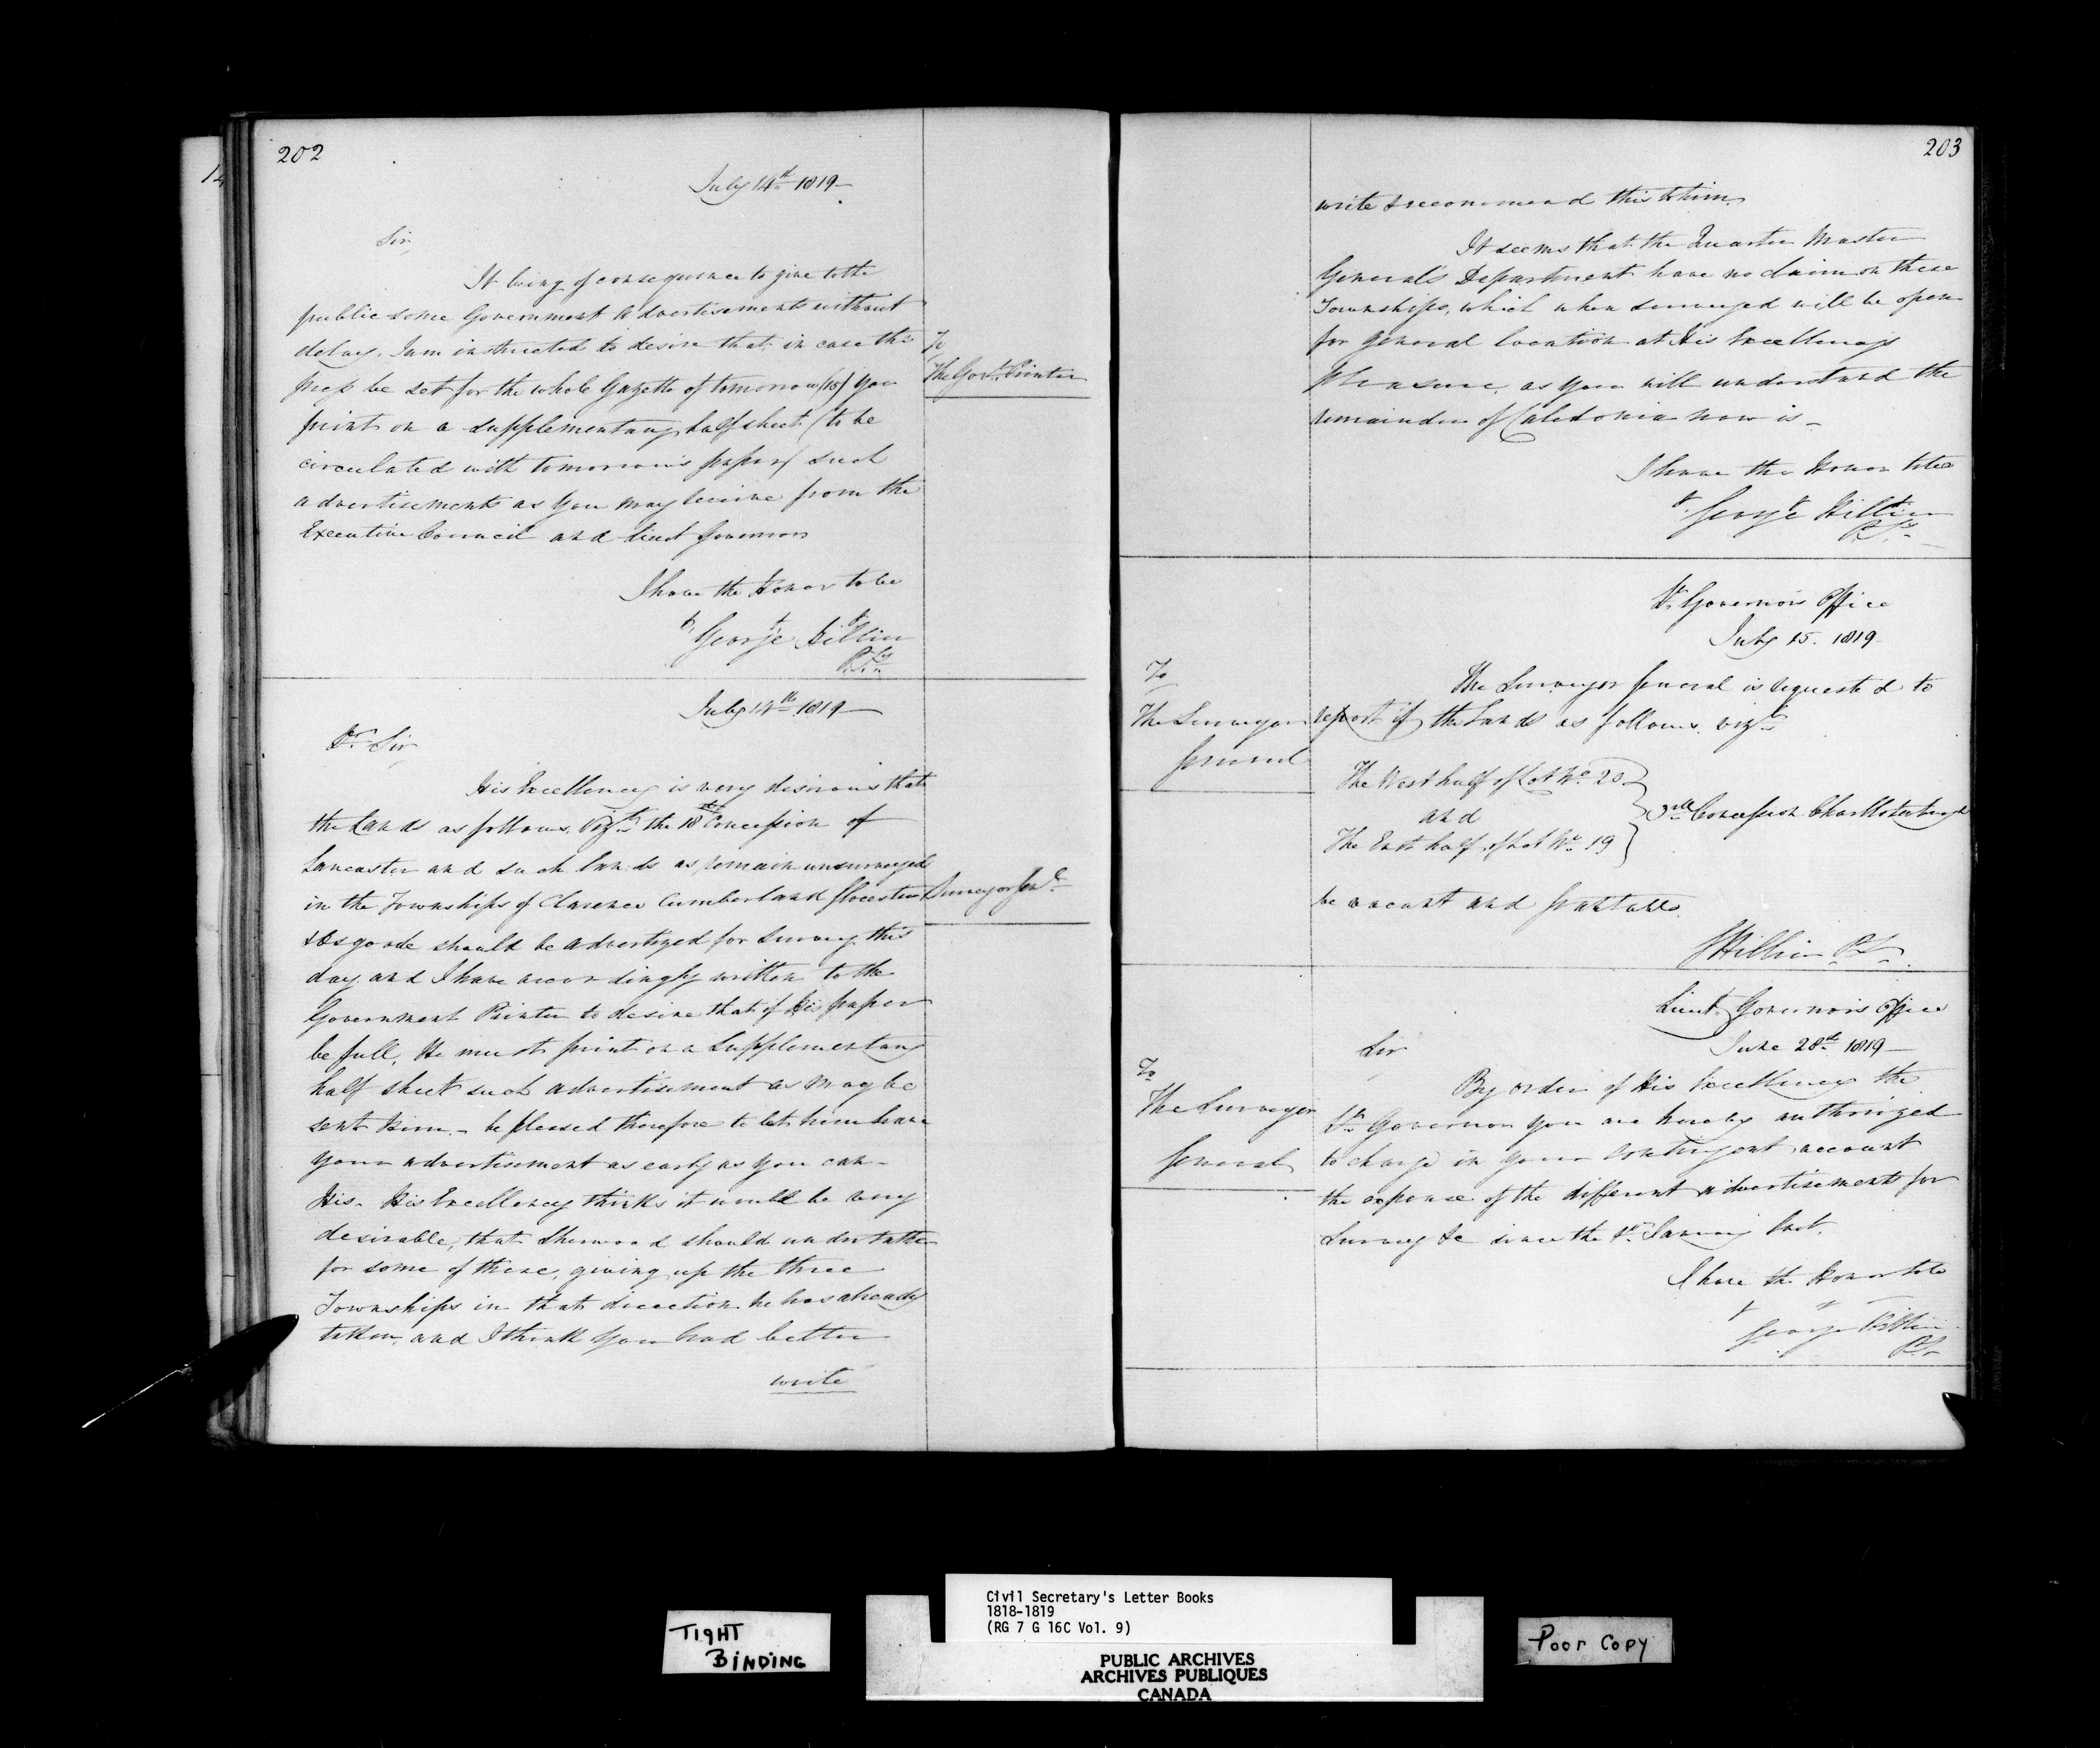 202
July 14th 1819
Sir
It being of consequence to give to the
public some Government Advertisements without
delay. I am instructed to desire that in case the
press be set for the whole Gazette of tomorrow (15) you
print on a supplementary half sheet (to be
circulated with tomorrow's paper) such
advertisements as you may receive from the
Executive Council and Lieut Governor
I have the Honor to be
George Hillier
P. Sy
To
The Govt. Printer
July 14th 1819
Dr. Sir
His Excellency is very desirous that
the Lands as follows, Vizt. the 18th Concession of
Lancaster and such lands as remain unsurveyed
in the Townships of Clarence Cumberland Glocester
& Osgoode should be advertized for Survey this
day and I have accordingly written to the
Government Printer to desire that if his paper
be full, He must print on a Supplementary
half sheet such advertisement as may be
sent Him - be pleased therefore to let him have
your advertisement as early as you can -
His - His Excellency thinks it would be very
desirable, that Sherwood should undertake
for some of these, giving up the three
Townships in that direction he has already
taken, and I think you had better
write
Surveyor Genl.
203
write & recommend this to him.
It seems that the Quarter Master
General's Department have no claim on these
Townships, which when surveyed will be open
for general location at His Excellency's
Pleasure, as you will understand the
remainder of Caledonia now is -
I have the Honor to be
George Hillier
P. Sy
Lt. Governor's Office
July 15. 1819
To
The Surveyor
General
The Surveyor General is requested to
report if the Lands as follows. vizt.
The West half of Lot No. 20
and
The East half of Lot No. 19
3rd Concession Charlottenburgh
be vacant and grantable.
G Hillier P. S.
Lieut. Governor's Office
June 28th 1819
Sir
To
The Surveyor
General
By order of His Excellency the
Lt. Governor you are hereby authorized
to charge in your Contingent account
the expense of the different advertisements for
Survey &c since the 1st January last.
I have the Honor to be
George Hillier
P. S.
TIGHT
BINDING
Civil Secretary's Letter Books
1818-1819
(RG 7 G 16C Vol. 9)
PUBLIC ARCHIVES
ARCHIVES PUBLIQUES
CANADA
Poor Copy